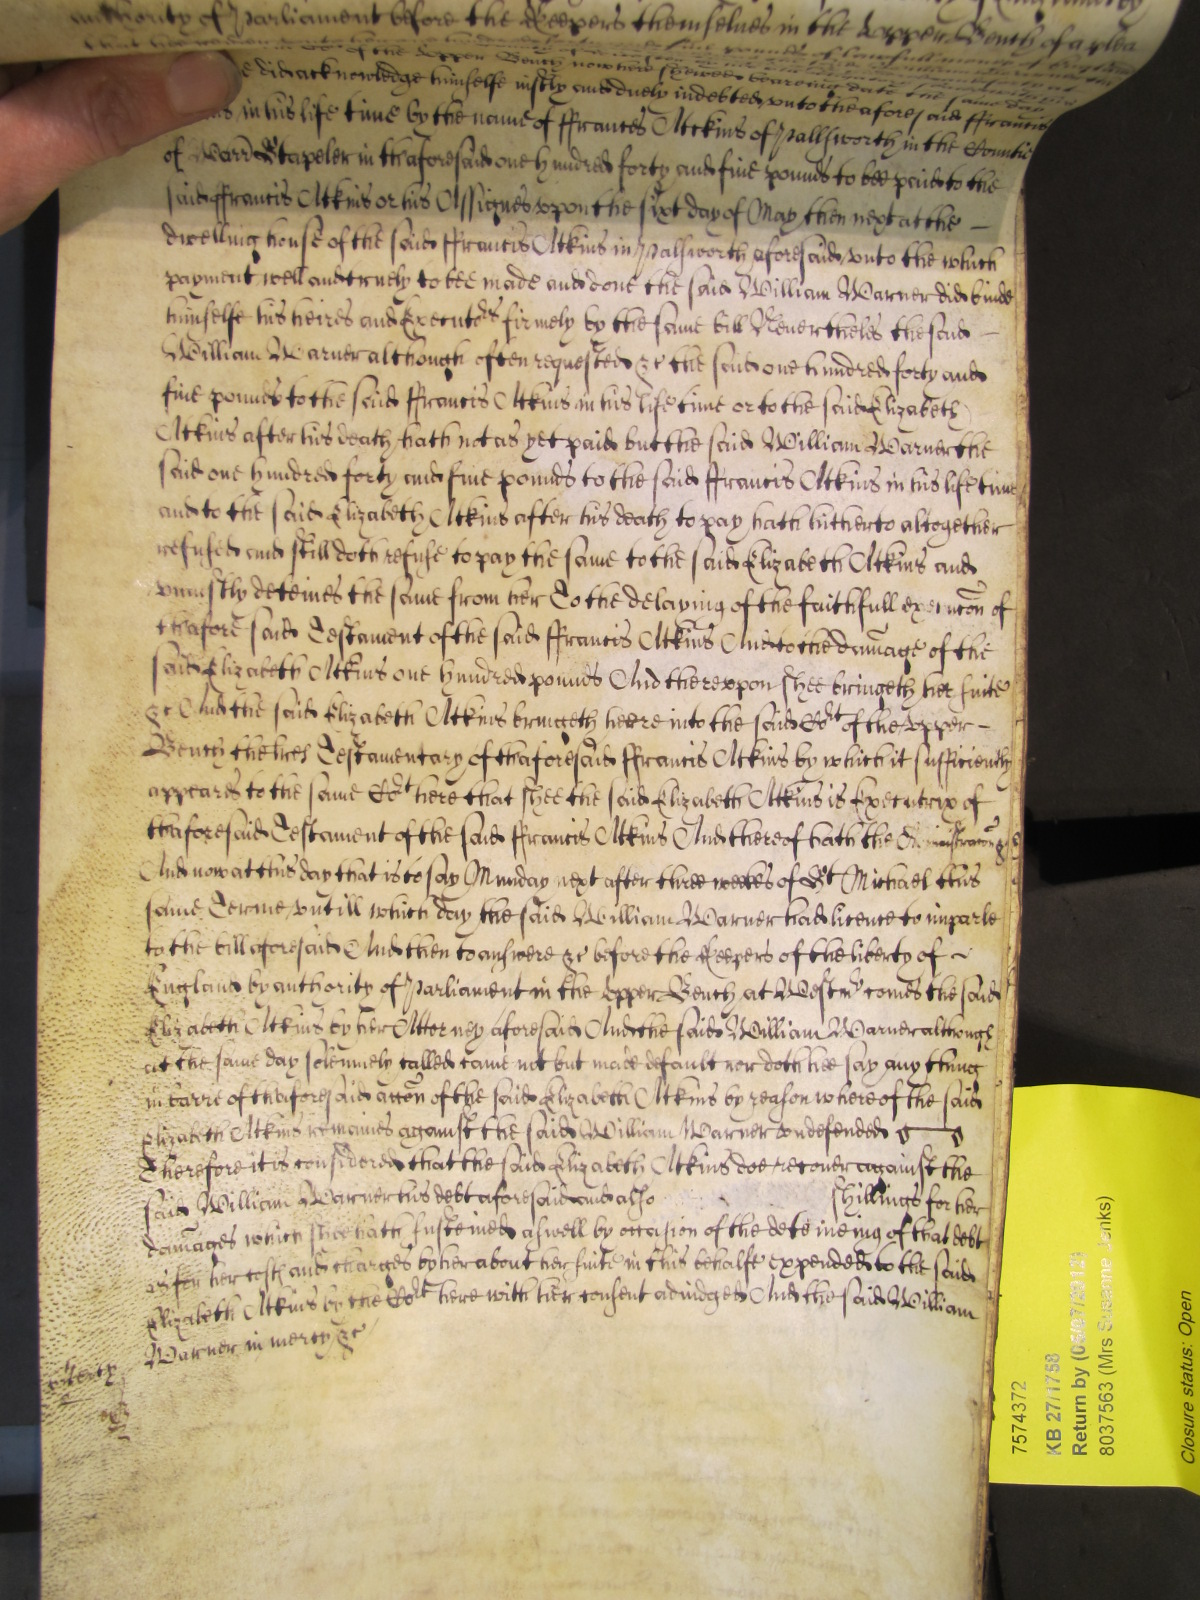 authority of Parliament before the Keepers themselues in the Upper Bench of a plea
did acknowledge himselfe iustly and duely indebted vnto the aforesaid ffrancis
in his life time by the name of ffrances Atkins of Pallsworth in the Countie
of Warr Stapeler in thaforesaid one hundred forty and fiue pounds to bee paid to the
said ffrancis Atkins or his Assignes vpon the sixt day of May then next at the
dwelling house of the said ffrancis Atkins in Palsworth aforesaid vnto the which
payment well and truely to bee made and done the said William Warner did binde
himselfe his heires and Executors firmely by the same bill Neuertheles the said
William Warner although often requested &c the said one hundred forty and
fiue pounds to the said ffrancis Atkins in his life time or to the said Elizabeth
Atkins after his death hath not as yet paid but the said William Warner the
said one hundred forty and fiue pounds to the said ffrancis Atkins in his life time
and to the said Elizabeth Atkins after his death to pay hath hitherto altogether
refused and still doth refuse to pay the same to the said Elizabeth Atkins and
vniustly deteines the same from her To the delaying of the faithfull execucon of
thafore said Testament of the said ffrancis Atkins And to the damage of the
said Elizabeth Atkins one hundred pounds And therevpon shee bringeth her suite
&c And the said Elizabeth Atkins bringeth heere into the said Cort of the Upper
Bench the lres Testamentary of thaforesaid ffrancis Atkins by which it sufficiently
appeares to the same Cort here that shee the said Elizabeth Atkins is Executrix of
thaforesaid Testament of the said ffrancis Atkins And thereof hath the Administracon &c
And now at this day that is to say Munday next after three weekes of St Michael this
same Terme vntill which day the said William Warner had licence to imparle
to the bill aforesaid And then to answere &c before the Keepers of the liberty of
England by authority of Parliament in the Upper Bench at Westmr comes the said
Elizabeth Atkins by her Attorney aforesaid And the said William Warner although
at the same day solemnely called came not but made default nor doth hee say any thing
in barre of thaforesaid accon of the said Elizabeth Atkins by reason whereof the said
Elizabeth Atkins remaines against the said William Warner vndefended
Therefore it is considered that the said Elizabeth Atkins doe recouer against the
said William Warner his debt aforesaid and also shillings for her
damages which shee hath susteined aswell by occasion of the deteineing of that debt
as for her costs and charges by her about her suite in this behalfe expended to the said
Elizabeth Atkins by the Cort here with her consent adiudged And the said William
Warner in mercy &c
Mercy
7574372
KB 27/1758
Return by (06/07/2012)
8037563 (Mrs Susanne Jenks)
Closure status: Open